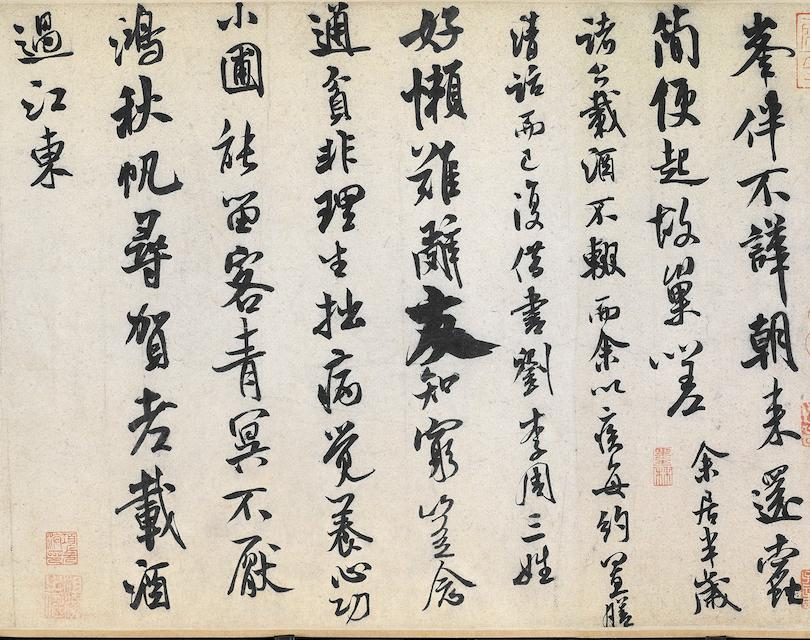 峯伴不譁朝来還蠹
簡便起故巢嗟 余居半歲
諸公載酒不輟而余以疾每約置膳
清話而已復借書劉李周三姓
好懶難辭友知窮豈念
通貧非理生拙病覺養心功
小圃能留客青冥不厭
鴻秋帆尋賀老載酒
過江東